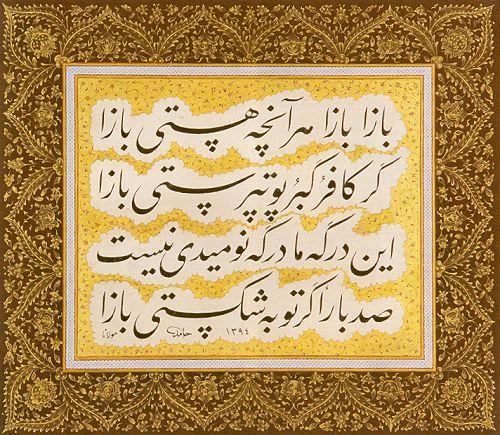 بازا بازا هر آنچه هستی بازا
گر کافر کبر و بت پرستی بازا
این درگه ما درگه نومیدی نیست
صد بار اگر توبه شکستی بازا
مولانا حامد ١٣٩٤